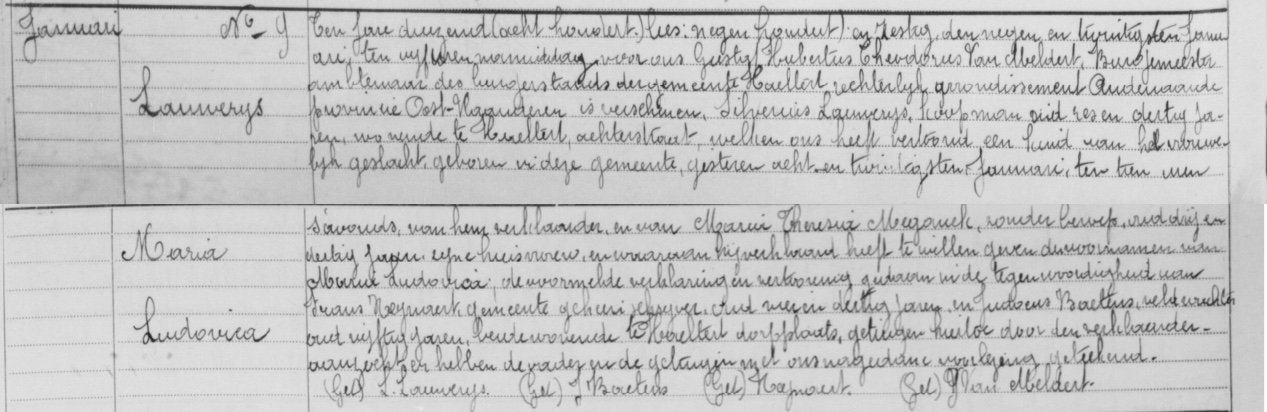 Januari
No 9
Lauwerys
Ten jare duizend (acht hondert) lees: negen hondert) en zestig, den negen en twintigsten Janu-
ari, ten vyf uren namiddag, voor ons Hubertus Theodorus Van Meldert, Burgemeester
ambtenaar des burgerstands der gemeente Haeltert, rechterlyk arrondissement Audenaarde
provincie Oost-Vlaanderen is verschenen, Silverius Lauwerys, koopman oud zes en dertig ja-
ren, wonende te Haeltert, achterstraat, welken ons heeft vertoond een kind van het vrouwe-
lyk geslacht, geboren in deze gemeente, gisteren acht en twintigsten Januari, ten tien uren
Maria
Ludovica
s'avonds, van hem verklaarder, en van Maria Theresia Meganck, zonder beroep, oud dry en
dertig jaren, zyne huisvrouw, en waaraan hy verklaard heeft te willen geven de voornamen van
Maria Ludovica; de voormelde verklaring en vertooning gedaan in de tegenwoordigheid van
Frans gemeente geheimschryver, oud en dertig jaren, en Judocus Baetens, veldwachter
oud vyftig jaren, beide wonende te Haeltert dorpplaats, getuigen hiertoe door den verklaarder
aanzocht en hebben de vader en de getuigen met ons na gedane voorlezing geteekend.
(Get) S. Lauwerys. (Get) J Baetens (Get) (Get) Van Meldert.